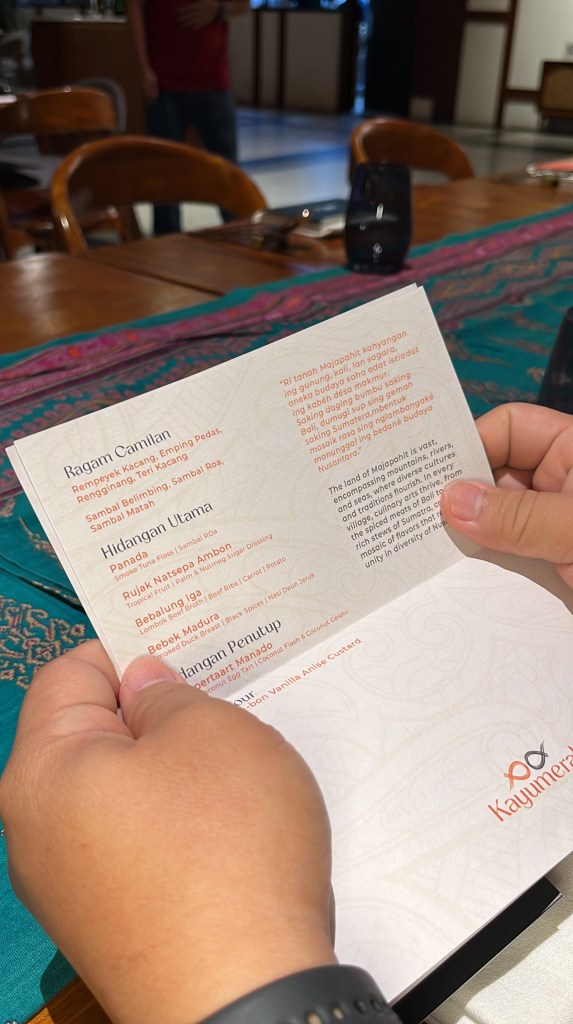 Ragam Camilan
Rempeyek Kacang, Emping Pedas,
Rengginang, Teri Kacang
Sambal Belimbing, Sambal Roa,
Sambal Matah
Hidangan Utama
Panada
Smoke Tuna Floss | Sambal ROa
Rujak Natsepa Ambon
Tropical Fruit | Palm & Nutmeg Sugar Dressing
Bebalung Iga
Lombok Beef Broth | Beef Ribs | Carrot | Potato
Bebek Madura
Smoked Duck Breast | Black Spices | Nasi Daun Jeruk
Penutup
Manado
Egg Tart | Coconut Flash & Coconut Gelato
Vanilla Anise Custard
"Ri tanah Majapahit kahyangan
ing gunung, kali, lan sagara,
aneka budaya saha adat istiadat
ing kabèh désa makmur.
Saking daging bumbu saking
Bali, dumugi sup sing gemah
saking Sumatera,mbentuk
mosaik rasa sing nglambangaké
manunggal ing bedané budaya
Nusantara."
The land of Majapahit is vast,
encompassing mountains, rivers,
and seas, where diverse cultures
and traditions flourish. In every
village, culinary arts thrive, from
the spiced meats of Bali to
rich stews of Sumatra,
mosaic of flavors that
unity in diversity of